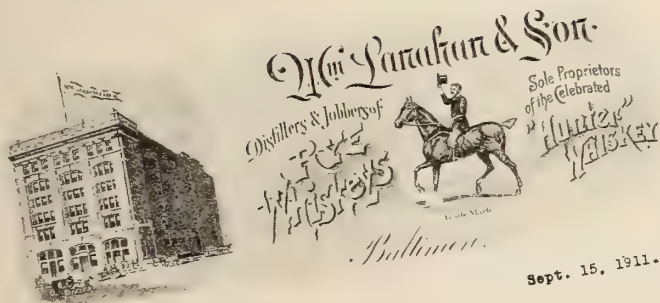 Wm Lanahan & Son.
Distillers & Jobbers of
RYE
Whiskeys
Sole Proprietors
of the Celebrated
"Hunter"
Whiskey
Trade Mark
Baltimore.
Sept. 15, 1911.